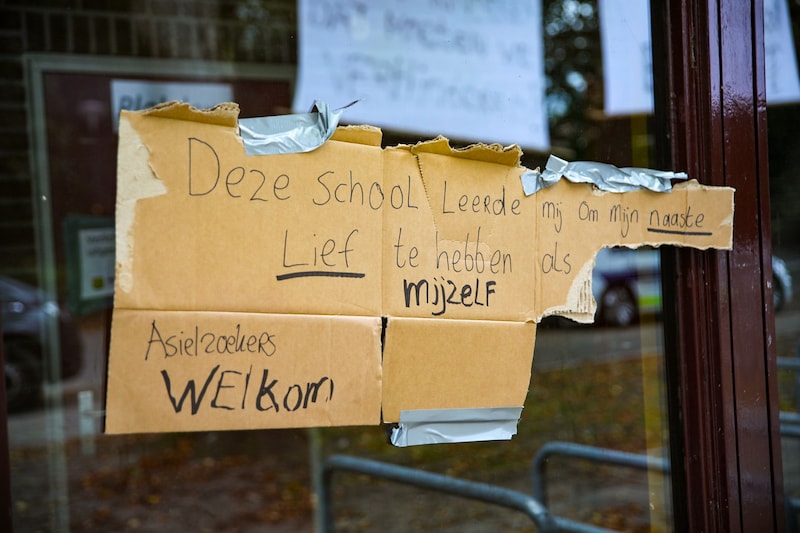 Deze School Leerde mij om mijn naaste
Lief te hebben als
mijzelf
Asielzoekers
Welkom